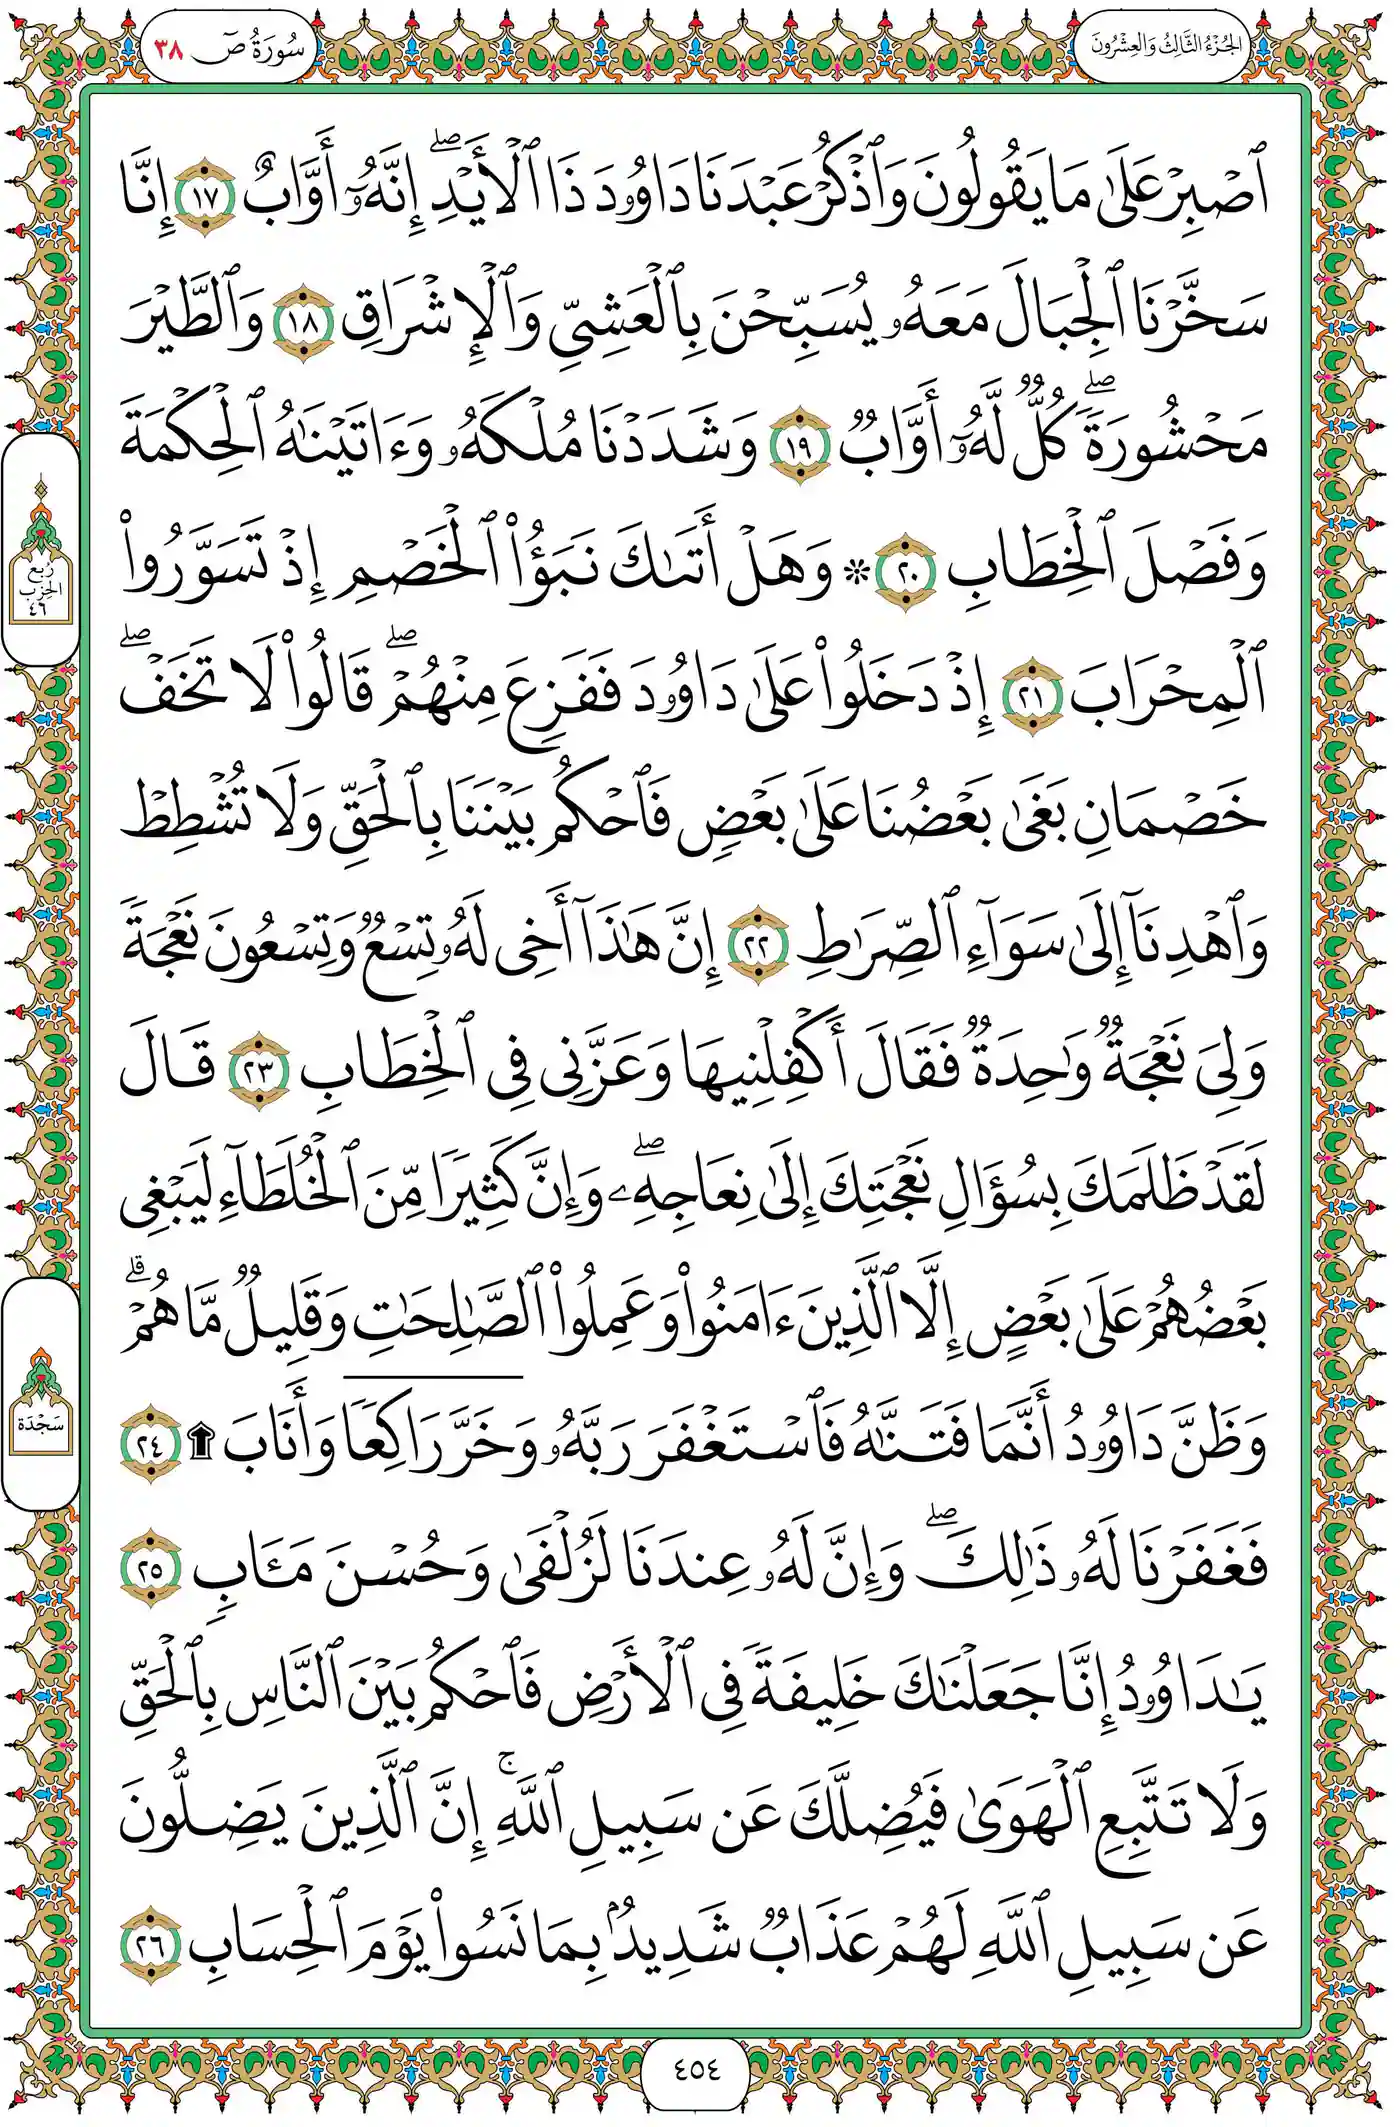 سُورَةُ صٓ ٣٨
الجُزْءُ الثَّالِثُ وَالعِشْرُونَ
ٱصۡبِرۡ عَلَىٰ مَا يَقُولُونَ وَٱذۡكُرۡ عَبۡدَنَا دَاوُۥدَ ذَا ٱلۡأَيۡدِۖ إِنَّهُۥٓ أَوَّابٌ ١٧ إِنَّا
سَخَّرۡنَا ٱلۡجِبَالَ مَعَهُۥ يُسَبِّحۡنَ بِٱلۡعَشِيِّ وَٱلۡإِشۡرَاقِ ١٨ وَٱلطَّيۡرَ
مَحۡشُورَةٗۖ كُلّٞ لَّهُۥٓ أَوَّابٞ ١٩ وَشَدَدۡنَا مُلۡكَهُۥ وَءَاتَيۡنَٰهُ ٱلۡحِكۡمَةَ
وَفَصۡلَ ٱلۡخِطَابِ ٢٠ ۞ وَهَلۡ أَتَىٰكَ نَبَؤُاْ ٱلۡخَصۡمِ إِذۡ تَسَوَّرُواْ
ٱلۡمِحۡرَابَ ٢١ إِذۡ دَخَلُواْ عَلَىٰ دَاوُۥدَ فَفَزِعَ مِنۡهُمۡۖ قَالُواْ لَا تَخَفۡۖ
خَصۡمَانِ بَغَىٰ بَعۡضُنَا عَلَىٰ بَعۡضٖ فَٱحۡكُم بَيۡنَنَا بِٱلۡحَقِّ وَلَا تُشۡطِطۡ
وَٱهۡدِنَآ إِلَىٰ سَوَآءِ ٱلصِّرَٰطِ ٢٢ إِنَّ هَٰذَآ أَخِي لَهُۥ تِسۡعٞ وَتِسۡعُونَ نَعۡجَةٗ
وَلِيَ نَعۡجَةٞ وَٰحِدَةٞ فَقَالَ أَكۡفِلۡنِيهَا وَعَزَّنِي فِي ٱلۡخِطَابِ ٢٣ قَالَ
لَقَدۡ ظَلَمَكَ بِسُؤَالِ نَعۡجَتِكَ إِلَىٰ نِعَاجِهِۦۖ وَإِنَّ كَثِيرٗا مِّنَ ٱلۡخُلَطَآءِ لَيَبۡغِي
بَعۡضُهُمۡ عَلَىٰ بَعۡضٍ إِلَّا ٱلَّذِينَ ءَامَنُواْ وَعَمِلُواْ ٱلصَّٰلِحَٰتِ وَقَلِيلٞ مَّا هُمۡۗ
وَظَنَّ دَاوُۥدُ أَنَّمَا فَتَنَّٰهُ فَٱسۡتَغۡفَرَ رَبَّهُۥ وَخَرَّۤ رَاكِعٗاۤ وَأَنَابَ ۩ ٢٤
فَغَفَرۡنَا لَهُۥ ذَٰلِكَۖ وَإِنَّ لَهُۥ عِندَنَا لَزُلۡفَىٰ وَحُسۡنَ مَـَٔابٖ ٢٥
يَٰدَاوُۥدُ إِنَّا جَعَلۡنَٰكَ خَلِيفَةٗ فِي ٱلۡأَرۡضِ فَٱحۡكُم بَيۡنَ ٱلنَّاسِ بِٱلۡحَقِّ
وَلَا تَتَّبِعِ ٱلۡهَوَىٰ فَيُضِلَّكَ عَن سَبِيلِ ٱللَّهِۚ إِنَّ ٱلَّذِينَ يَضِلُّونَ
عَن سَبِيلِ ٱللَّهِ لَهُمۡ عَذَابٞ شَدِيدُۢ بِمَا نَسُواْ يَوۡمَ ٱلۡحِسَابِ ٢٦
رُبع
الحِزْب
٤٦
سَجْدَة
٤٥٤